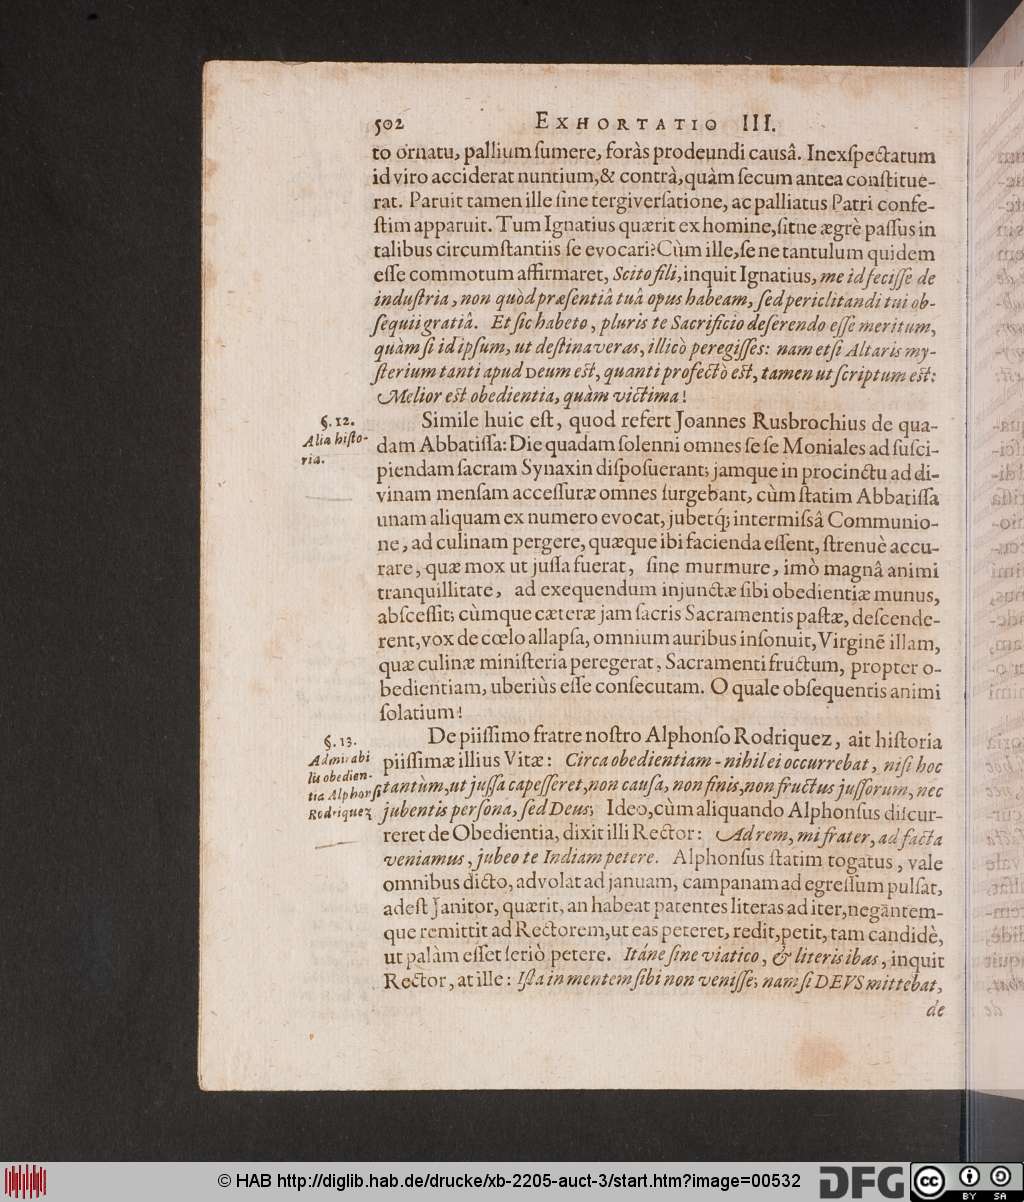 502 EXHORTATIO III.
to ornatu, pallium ſumere, foràs prodeundi causâ. Inexſpectatum
id viro acciderat nuntium, & contrà, quàm ſecum antea conſtitue-
rat. Paruit tamen ille ſine tergiverſatione, ac palliatus Patri confe-
ſtim apparuit. Tum Ignatius quærit ex homine, ſitne ægrè paſſus in
talibus circumſtantiis ſe evocari? Cùm ille, ſe ne tantulum quidem
eſſe commotum affirmaret, Scito fili, inquit Ignatius, me id feciſſe de
induſtria, non quòd præſentiâ tuâ opus habeam, ſed periclitandi tui ob-
ſequii gratiâ. Et ſic habeto, pluris te Sacrificio deſerendo eſſe meritum,
quàm ſi id ipſum, ut deſtinaveras, illicò peregiſſes: nam etſi Altaris my-
ſterium tanti apud Deum eſt, quanti profectò eſt, tamen ut ſcriptum eſt:
Melior eſt obedientia, quàm victima!
§. 12.
Alia hiſto-
ria.
Simile huic eſt, quod refert Joannes Rusbrochius de qua-
dam Abbatiſſa: Die quadam ſolenni omnes ſe ſe Moniales ad ſuſci-
piendam ſacram Synaxin diſpoſuerant; jamque in procinctu ad di-
vinam menſam acceſſuræ omnes ſurgebant, cùm ſtatim Abbatiſſa
unam aliquam ex numero evocat, jubetq́; intermiſsâ Communio-
ne, ad culinam pergere, quæque ibi facienda eſſent, ſtrenuè accu-
rare, quæ mox ut juſſa fuerat, ſine murmure, imò magnâ animi
tranquillitate, ad exequendum injunctæ ſibi obedientiæ munus,
abſceſſit; cùmque cæteræ jam ſacris Sacramentis paſtæ, deſcende-
rent, vox de cœlo allapſa, omnium auribus inſonuit, Virginẽ illam,
quæ culinæ miniſteria peregerat, Sacramenti fructum, propter o-
bedientiam, uberiùs eſſe conſecutam. O quale obſequentis animi
ſolatium!
§. 13.
Admirabi
lis obedien-
tia Alphonſi
Rodriquez
De piiſſimo fratre noſtro Alphonſo Rodriquez, ait hiſtoria
piiſſimæ illius Vitæ: Circa obedientiam - nihil ei occurrebat, niſi hoc
tantùm, ut juſſa capeſſeret, non cauſa, non finis, non fructus juſſorum, nec
jubentis perſona, ſed Deus; Ideo, cùm aliquando Alphonſus diſcur-
reret de Obedientia, dixit illi Rector: Ad rem, mi frater, ad facta
veniamus, jubeo te Indiam petere. Alphonſus ſtatim togatus, vale
omnibus dicto, advolat ad januam, campanam ad egreſſum pulſat,
adeſt Janitor, quærit, an habeat patentes literas ad iter, negãntem-
que remittit ad Rectorem, ut eas peteret, redit, petit, tam candidè,
ut palàm eſſet ſeriò petere. Itáne ſine viatico, & literis ibas, inquit
Rector, at ille: Iſta in mentem ſibi non veniſſe; nam ſi DEVS mittebat,
de
© HAB http://diglib.hab.de/drucke/xb-2205-auct-3/start.htm?image=00532
DFG
cc BY SA